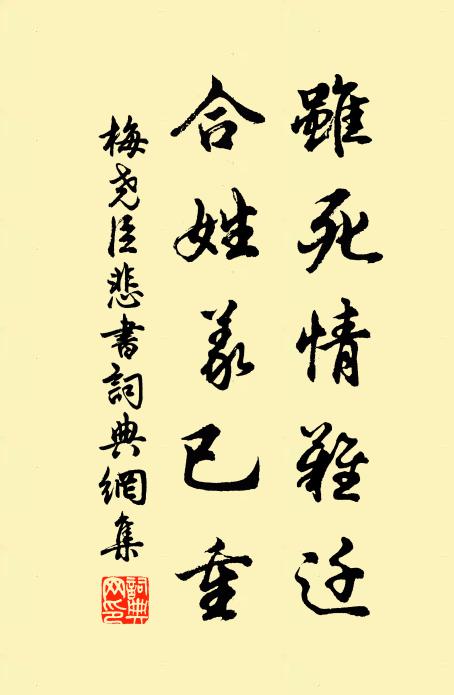 雖死情難迁
合姓義已重
梅尧臣悲書詞典網集
詞典网印